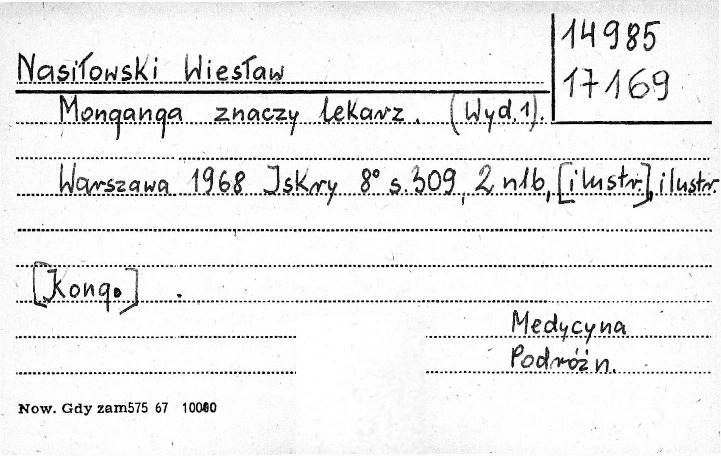 14985
17169
Nasiłowski Wiesław
Monganga znaczy lekarz. (Wyd.1).
Warszawa 1968 Iskry 8° s.309, 2 nlb, [ilustr.], ilustr.
[Kongo]
Medycyna
Podróżn.
Now. Gdy zam575 67 10000